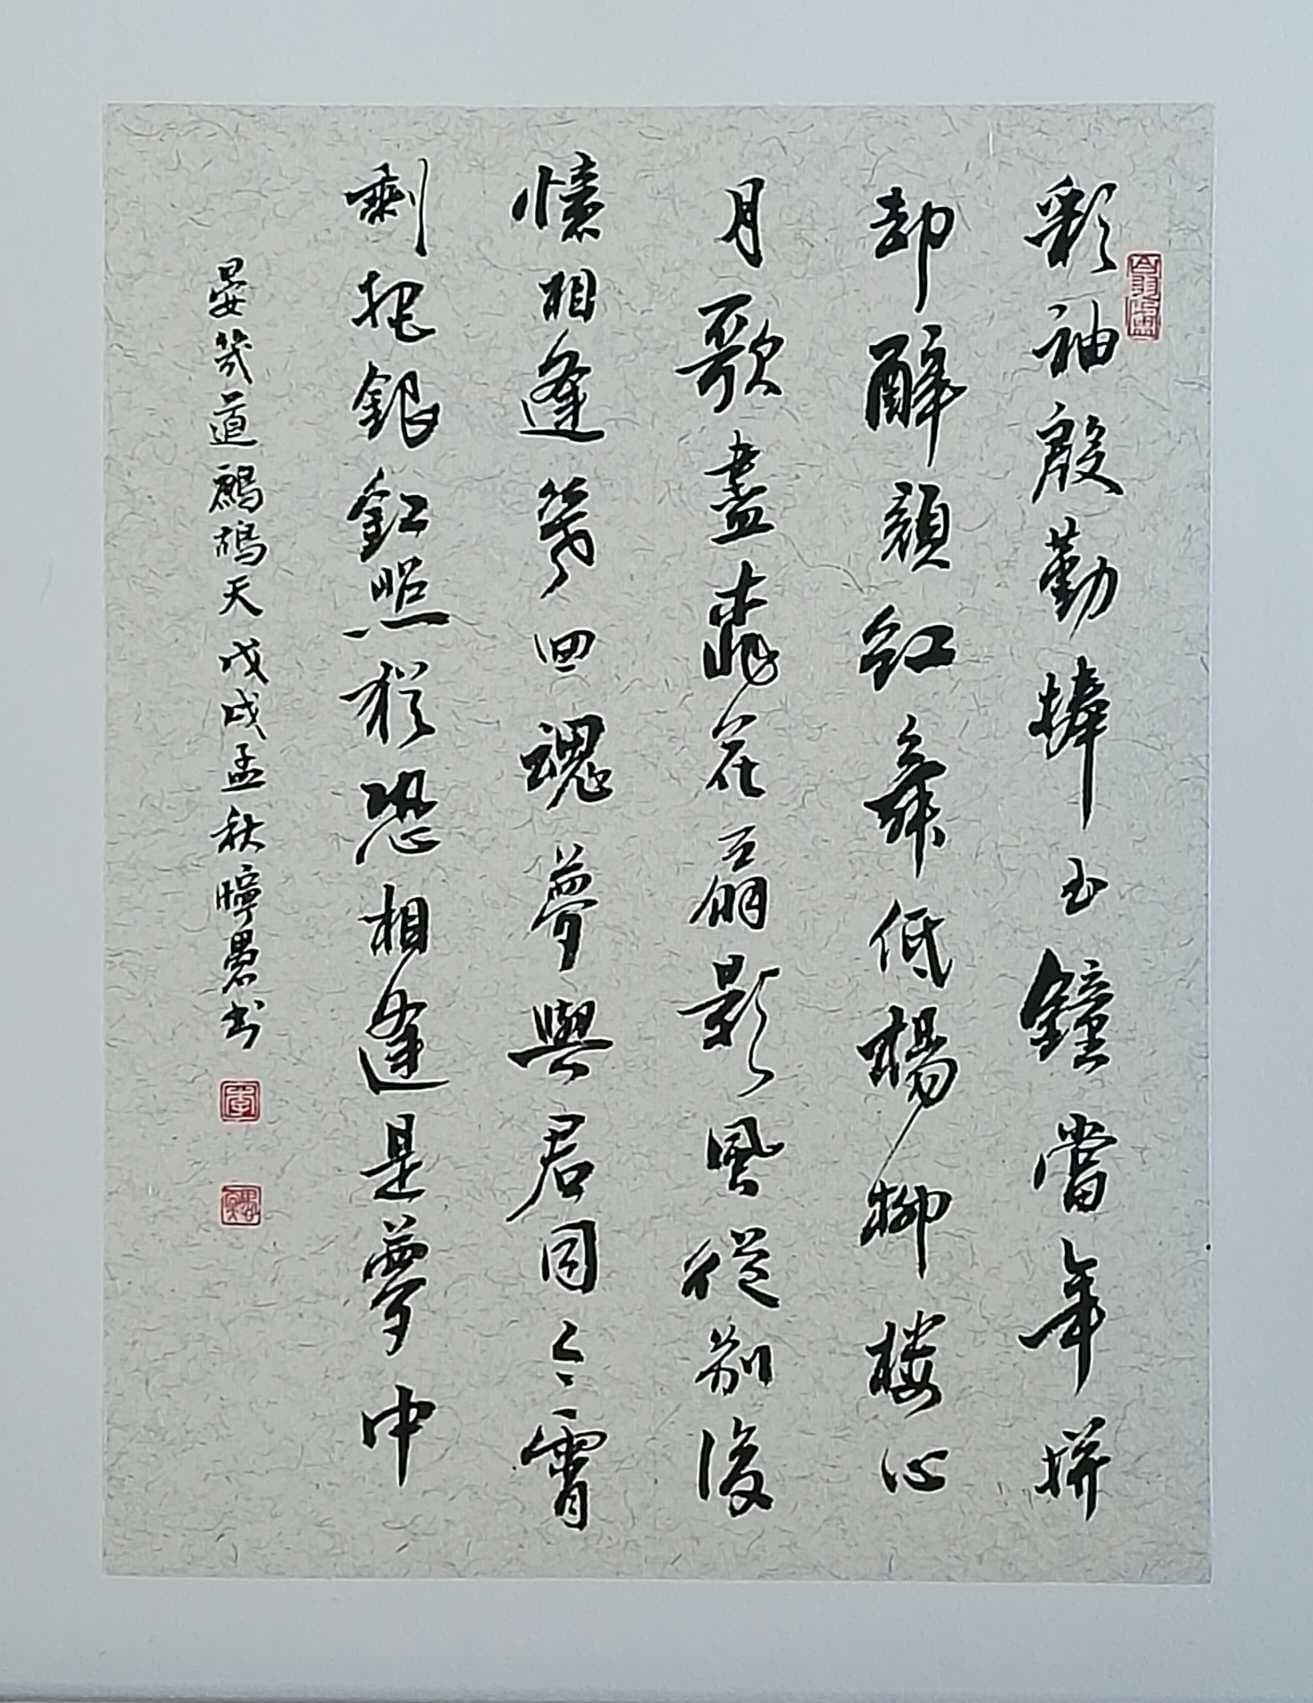 彩袖殷勤捧玉鐘當年拼
却醉顏紅舞低楊柳樓心
月歌盡桃花扇影風從別後
憶相逢幾回魂夢與君同今宵
剩把銀釭照猶恐相逢是夢中
晏幾道鷓鴣天戊戌孟秋愚书